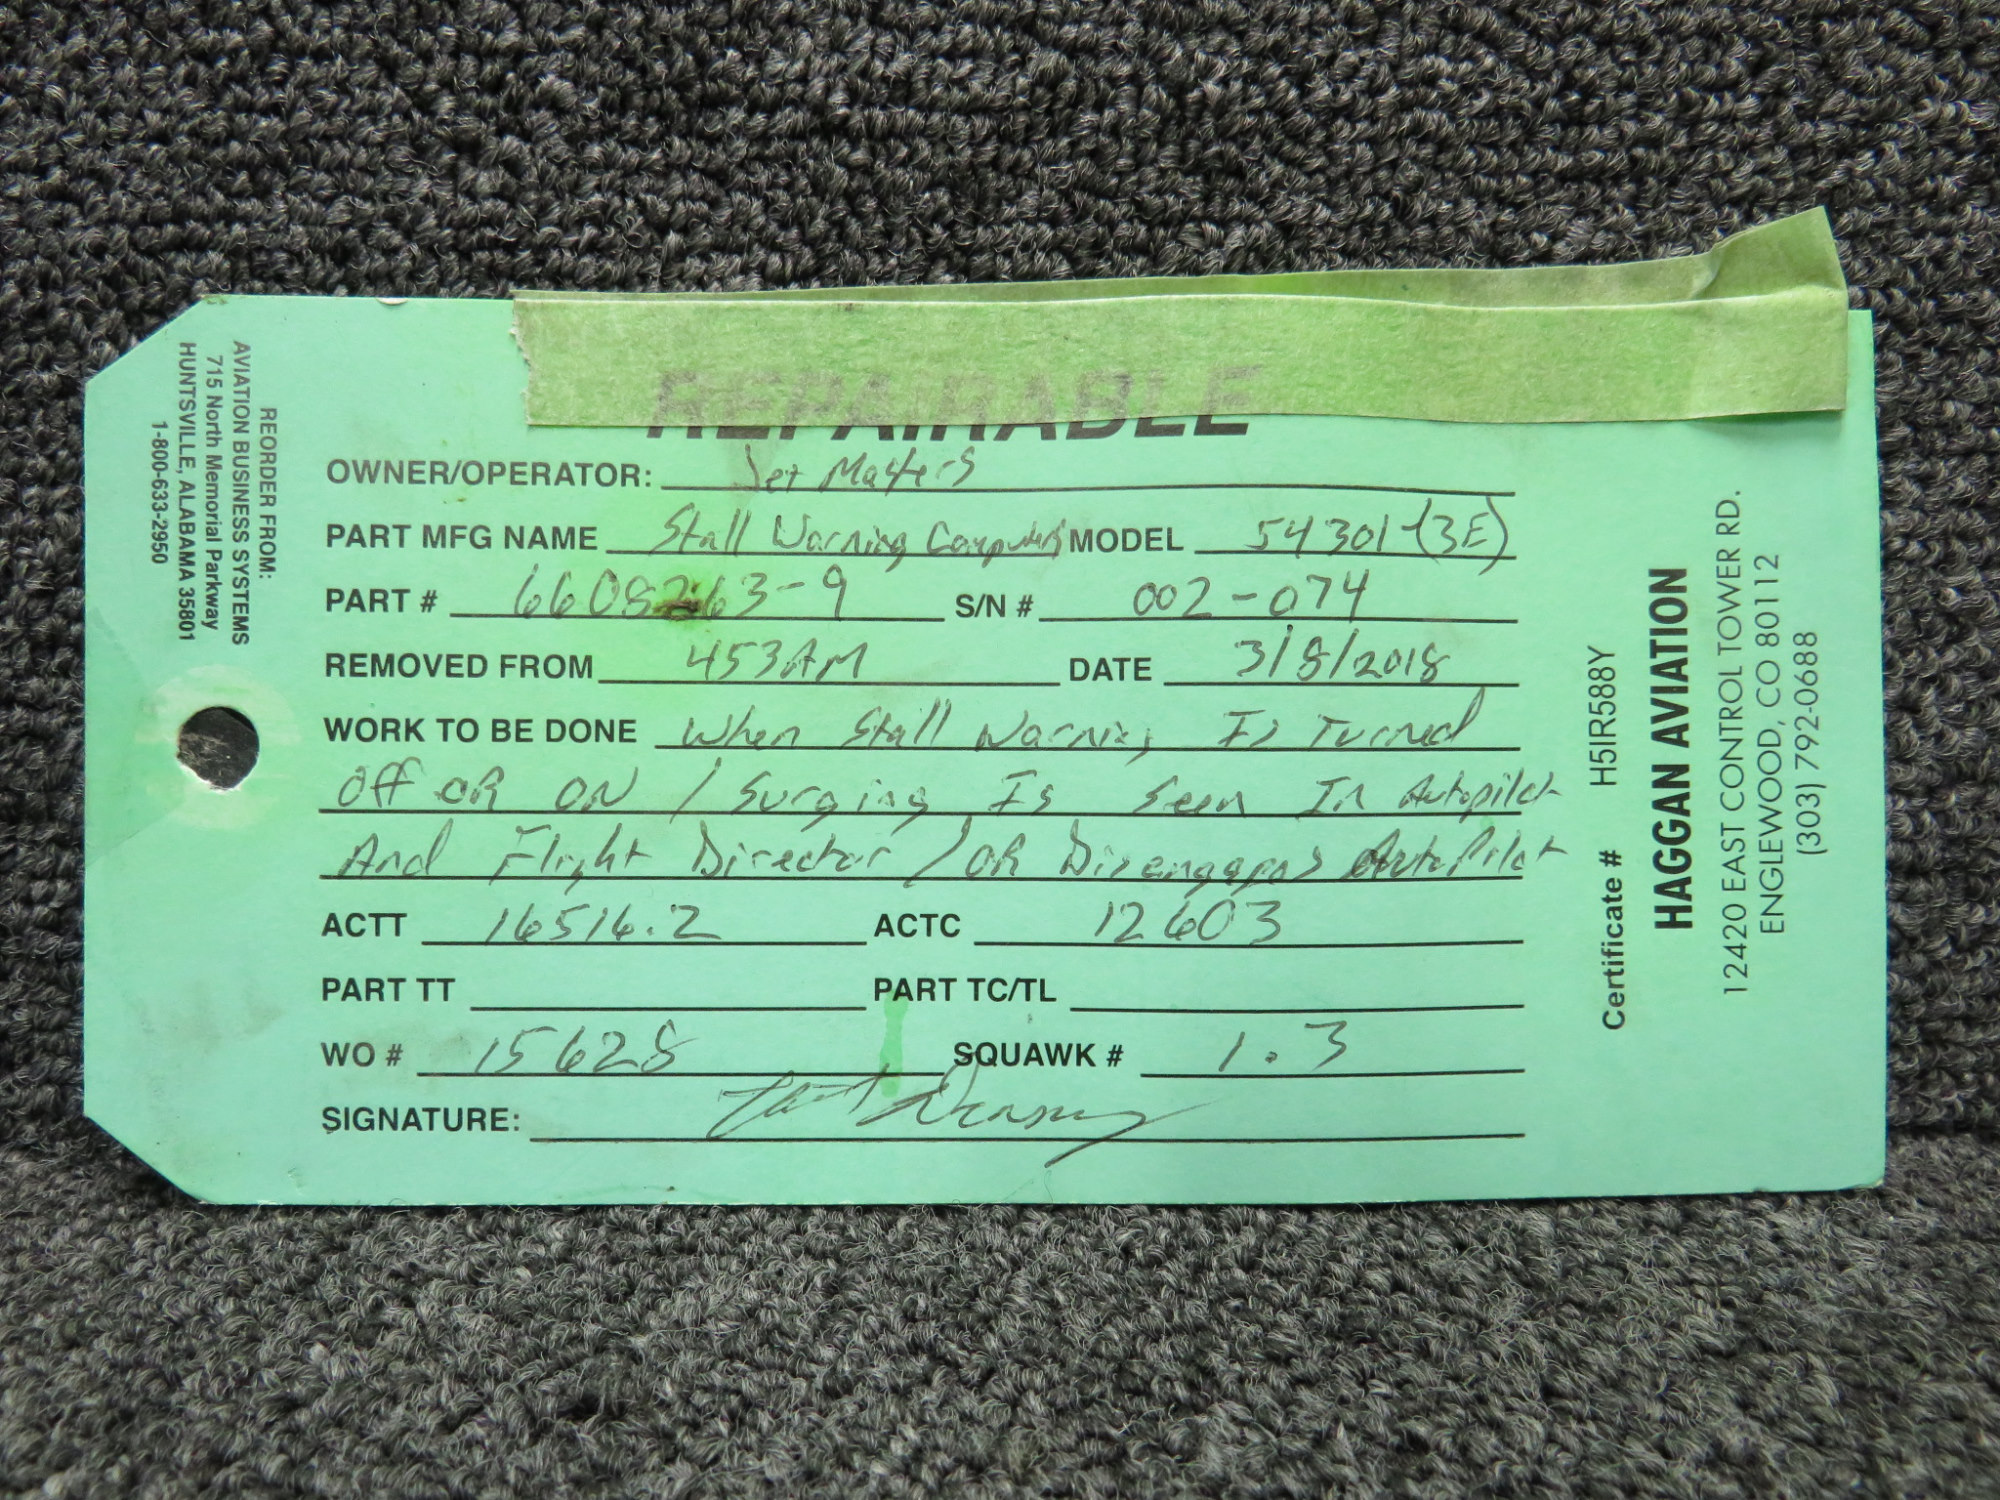 REPAIRABLE
OWNER/OPERATOR: Jet Masters
PART MFG NAME Stall Warning Computer MODEL 54301-(3E)
PART # 6608263-9 S/N # 002-074
REMOVED FROM 453AM DATE 3/8/2018
WORK TO BE DONE When Stall Warning Is Turned
Off OR ON / Surging Is Seen In Autopilot
And Flight Director / OR Disengages AutoPilot
ACTT 16516.2 ACTC 12603
PART TT PART TC/TL
WO # 15628 SQUAWK # 1.3
SIGNATURE:
REORDER FROM:
AVIATION BUSINESS SYSTEMS
715 North Memorial Parkway
HUNTSVILLE, ALABAMA 35801
1-800-633-2950
Certificate # H5IR588Y
HAGGAN AVIATION
12420 EAST CONTROL TOWER RD.
ENGLEWOOD, CO 80112
(303) 792-0688